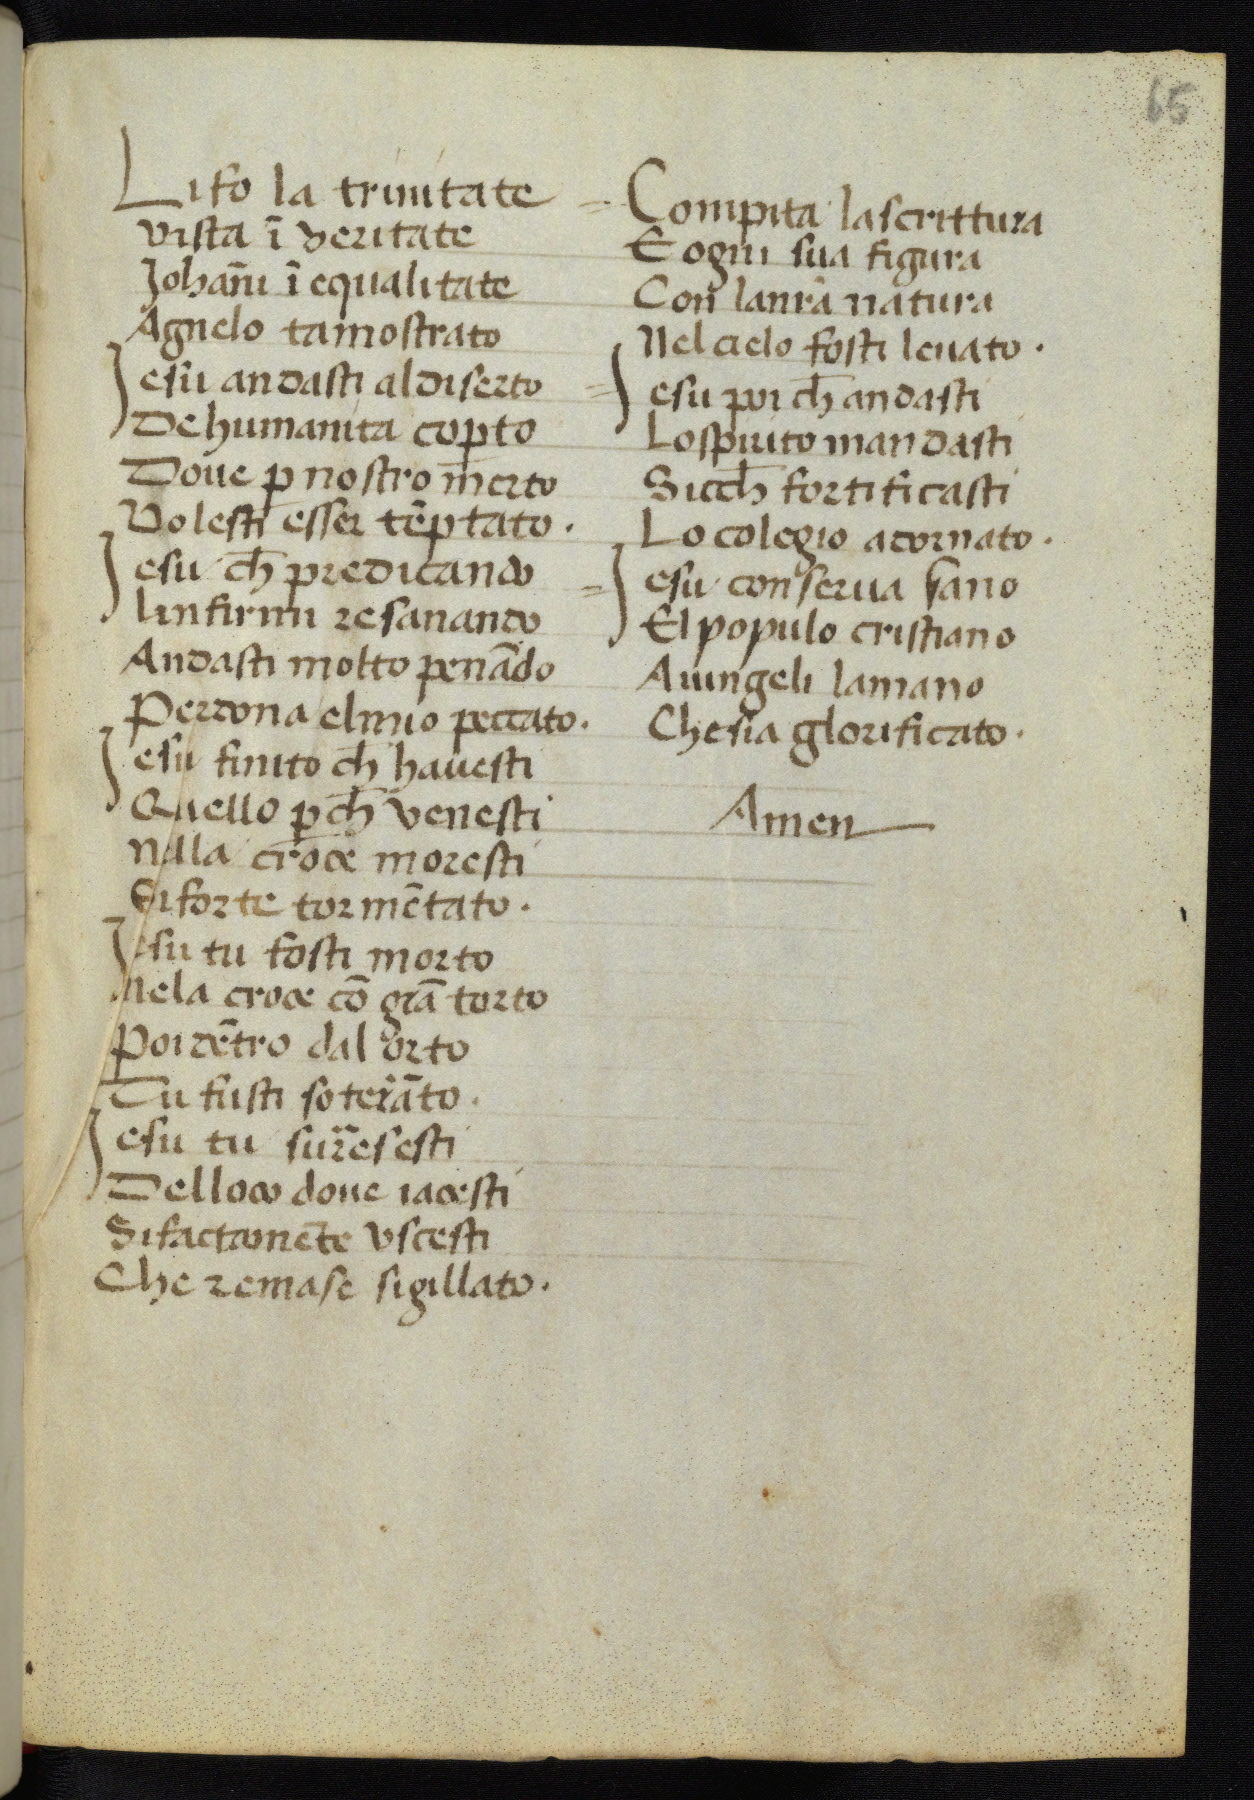 65
Li fo la trinitate
vista ī veritate
Johāni ī equalitate
Agnelo ta mostrato
Jesu andasti al diserto
De humanita cop̄to
Doue p̱ nostro m̄erto
Volesti esser tēptato.
Jesu ch̄ predicando
linfirmi resanando
Andasti molto penādo
Perdona el mio peccato.
Jesu finito ch̄ havesti
Quello p̱ch̄ venesti
Nella croce moresti
Si forte tormētato.
Jesu tu fosti morto
Nela croce cō grā torto
Poi dētro dal orto
Tu fusti soterāto.
Jesu tu surresesti
Delloco doue iacesti
Si factamēte vscesti
Che remase sigillato.
Compita la scrittura
E ogni sua figura
Con lanrā natura
Nel cielo fosti leuato.
Jesu poi ch̄ andasti
Lo spirito mandasti
Sicch̄ fortificasti
Lo colegio adornato.
Jesu conserua sano
El populo cristiano
A iungeli la mano
Che sia glorificato.
Amen